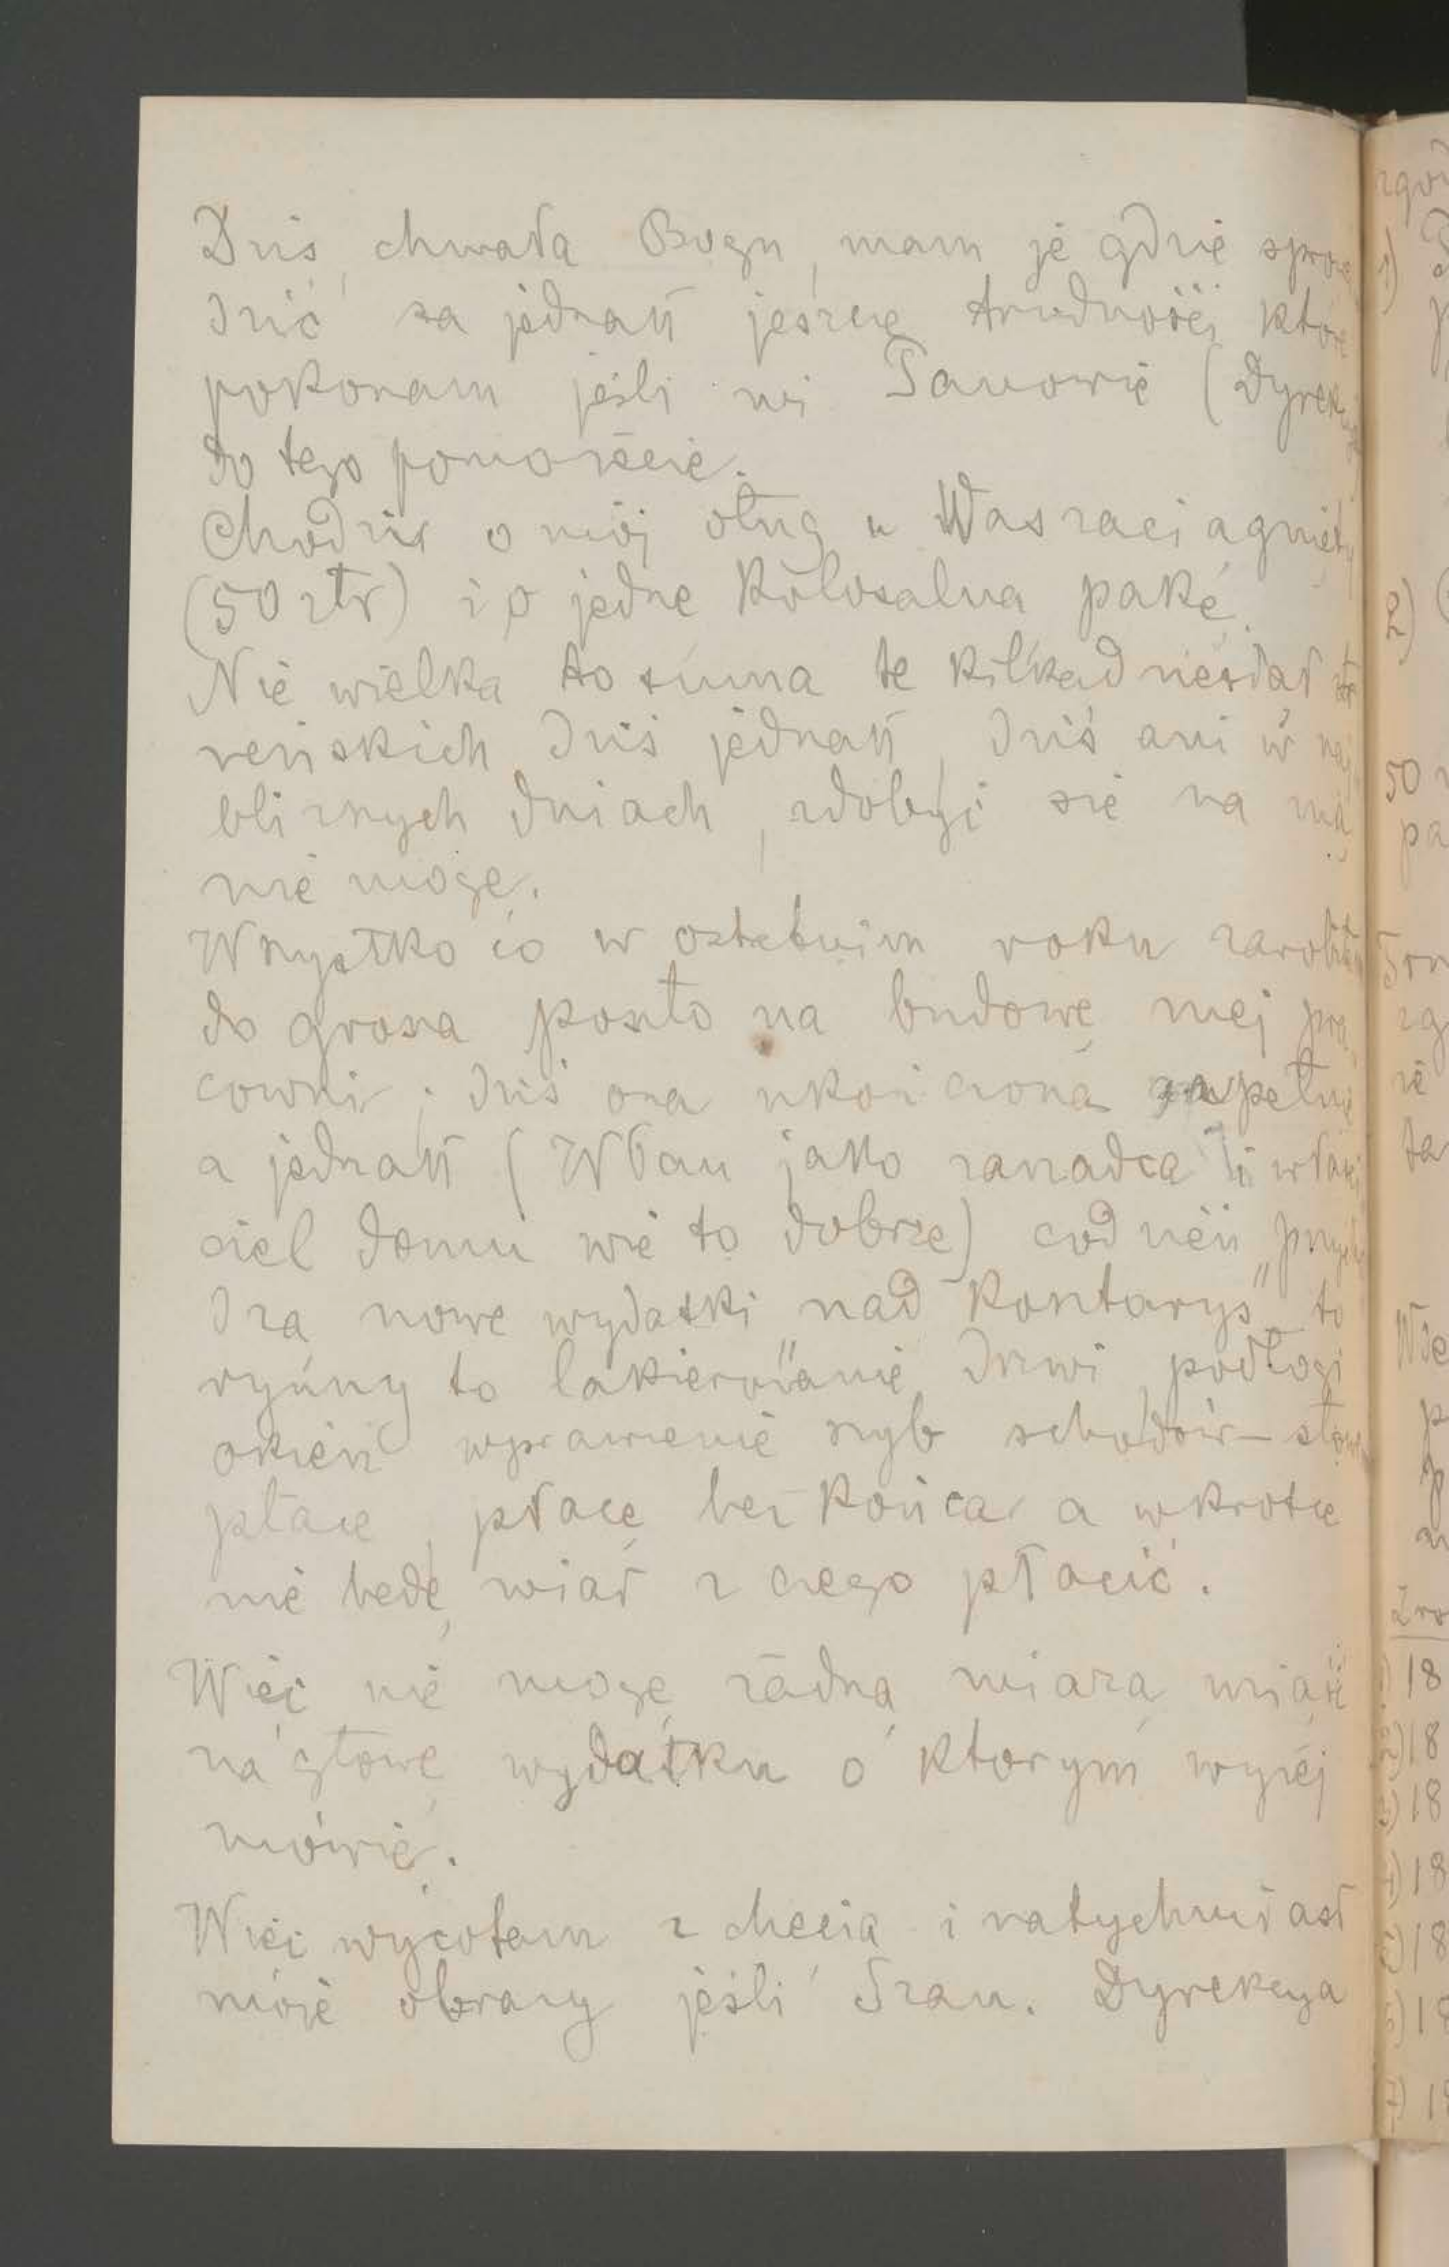 Dziś, chwała Bogu, mam je gdzie sprowa
dzić są jednak jeszcze trudności które
pokonam jeśli mi Panowie (Dyrek
do tego pomożecie.
Chodzi o mój dług u Was zaciągnięty
(50 złr) i o jedne kolosalna pakę.
Nie wielka to suma te kilkadziesiąt
reńskich dziś jednak, dziś ani w naj
bliższych dniach, zdobyć się na nią
nie mogę.
Wszystko co w ostatnim roku zarobiłem
do grosza poszło na budowę mej pra
cowni; dziś ona ukończona zupełnie
a jednak (WPan jako zarządca i właści
ciel domu wie to dobrze) codzień przycho
dzą nowe wydatki „nad kosztorys" to
rynny to lakierowanie drzwi, podłogi
okien wprawienie szyb schodów – słowem
płacę, płacę bez końca a wkrótce
nie będę miał z czego płacić.
Więc nie mogę żadną miarą wziąść
na głowę wydatku o ktorym wyżej
mówię.
Więc wycofam z chęcią i natychmiast
moje obrazy jeśli Szan. Dyrekcya
1)
2)
50
pa
18
18
18
18
18